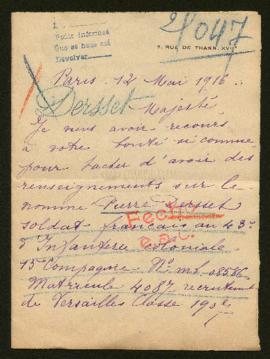 2/047
Para informes
Que se hace así
Devolver
7, RUE DE THANN. XVII
Paris. 12 Mai 1916.
Dersset
Majesté
Je viens avoir recours
à votre bonté si connue
pour tacher d'avoir des
renseignements sur le
nommé Pierre Dersset
Fecho
soldat français au 43e
d'Infanterie Coloniale
15e Compagnie. No mle 08586
Matricule 4087 recrutement
de Versailles Classe